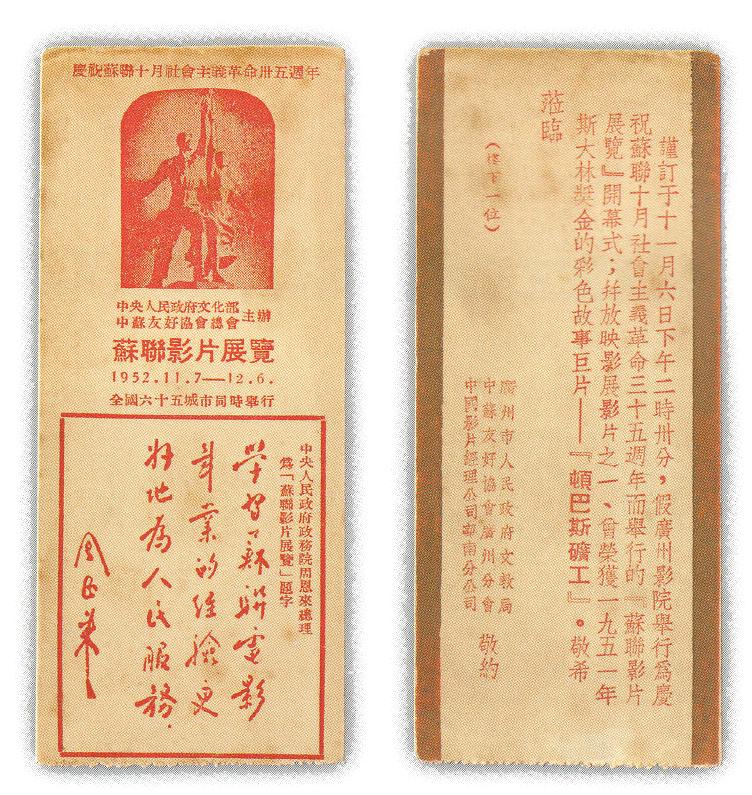 慶祝蘇聯十月社會主義革命卅五週年
中央人民政府文化部
中蘇友好協會總會
主辦
蘇聯影片展覽
1952.11.7—12.6.
全國六十五城市同時舉行
中央人民政府政務院周恩來總理
爲「蘇聯影片展覽」題字
學習蘇聯電影
事業的經驗更
好地為人民服務.
周恩來
謹訂于十一月六日下午二時卅分，假廣州影院舉行爲慶
祝蘇聯十月社會主義革命三十五週年而舉行的『蘇聯影片
展覽』開幕式；幷放映影展影片之一、曾榮獲一九五一年
斯大林奬金的彩色故事巨片——『頓巴斯礦工』。敬希
蒞臨
(樓下一位)
廣州市人民政府文教局
中蘇友好協會廣州分會
中國影片經理公司華南分公司
敬約